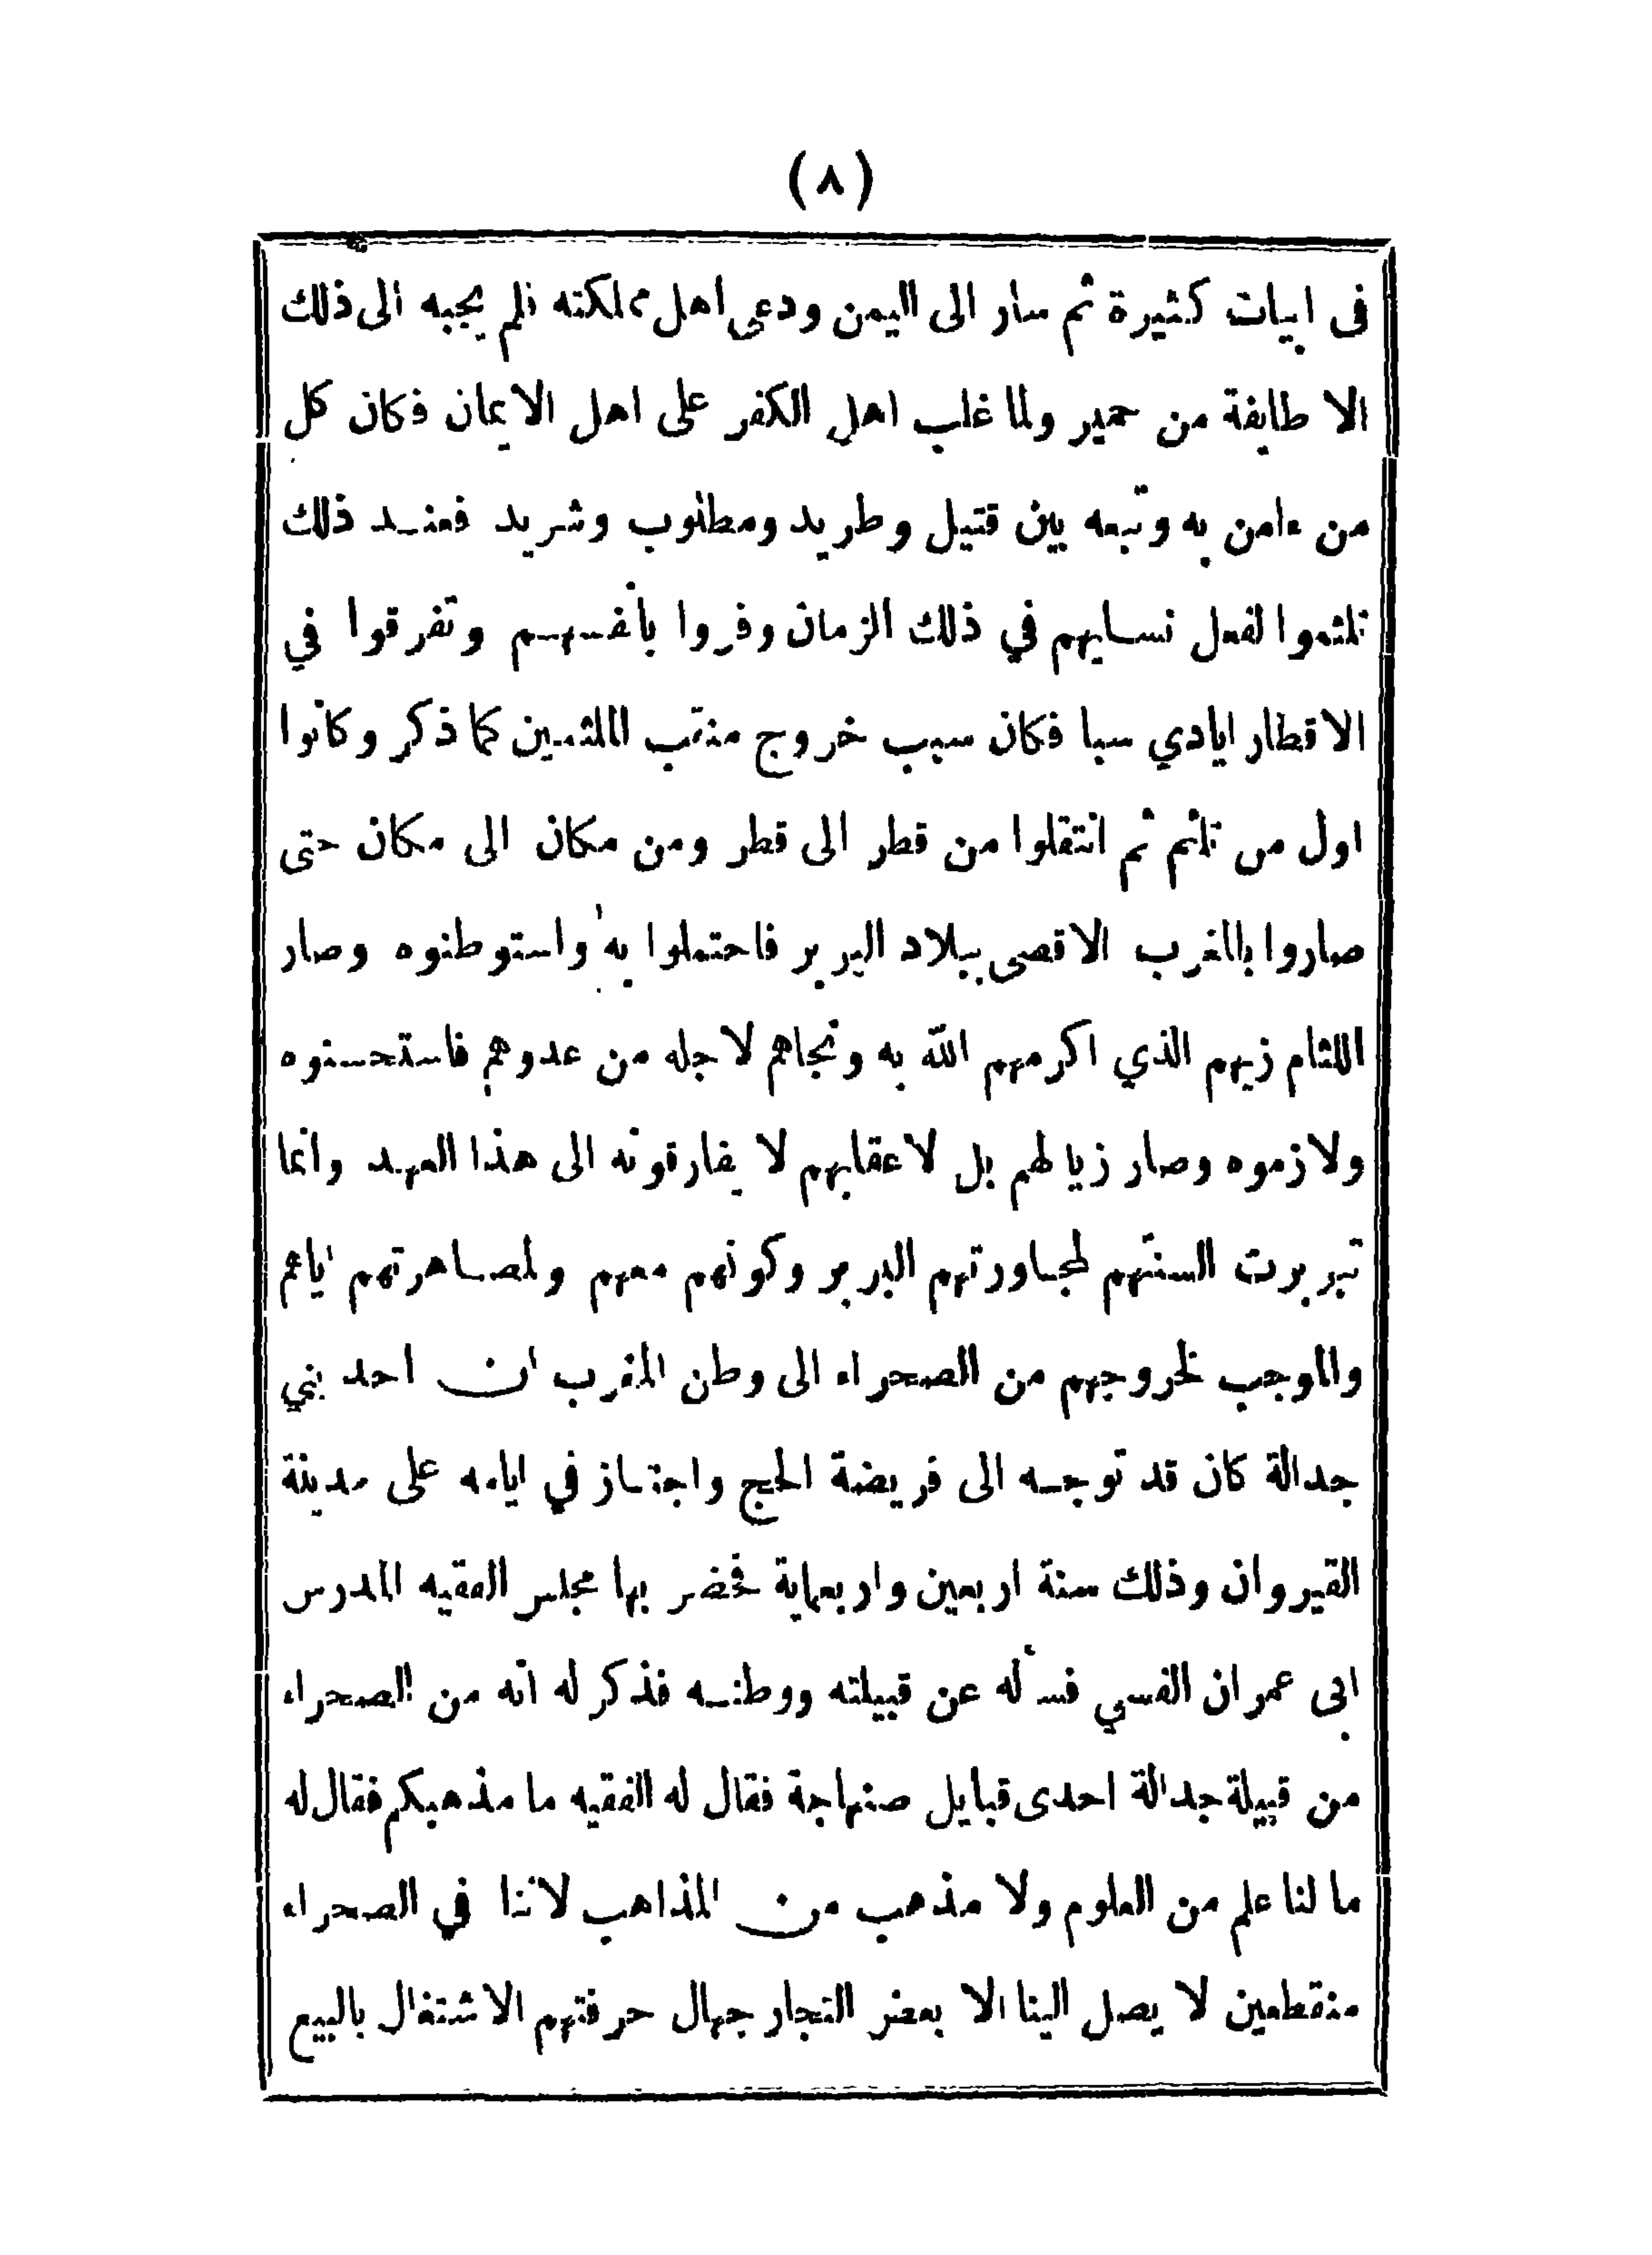 (٨)
فى ابيات كثيرة ثم سار الى اليمن ودعى اهل مملكته فلم يجبه الى ذلك
الا طايفة من حمير ولما غلب اهل الكفر على اهل الايمان فكان كل
من ءامن به وتبعه بين قتيل وطريد ومطلوب وشريد فعند ذلك
تلثموا لفعل نسايهم في ذلك الزمان وفروا بأنفسهم وتفرقوا في
الاقطار ايادي سبا فكان سبب خروج منقب الملثمين كما ذكر وكانوا
اول من تلثم ثم انتقلوا من قطر الى قطر ومن مكان الى مكان حتى
صاروا بالمغرب الاقصى ببلاد البربر فاحتملوا به واستوطنوه وصار
اللثام زيهم الذي اكرمهم الله به ونجاهم لاجله من عدوهم فاستحسنوه
ولازموه وصار زيا لهم بل لاعقابهم لا يفارقونه الى هذا العهد وانما
تبربرت السنتهم لمجاورتهم البربر وكونهم معهم ولمصاهرتهم اياهم
والموجب لخروجهم من الصحراء الى وطن المغرب ان احد بني
جدالة كان قد توجه الى فريضة الحج واجتاز في ايامه على مدينة
القيروان وذلك سنة اربعين واربعماية فحضر بها مجلس الفقيه المدرس
ابى عمران الفسي فسأله عن قبيلته ووطنه فذكر له انه من الصحراء
من قبيلة جدالة احدى قبايل صنهاجة فقال له الفقيه ما مذهبكم فقال له
ما لنا علم من العلوم ولا مذهب من المذاهب لاننا في الصحراء
منقطعين لا يصل الينا الا بعض التجار جهال حرفتهم الاشتغال بالبيع